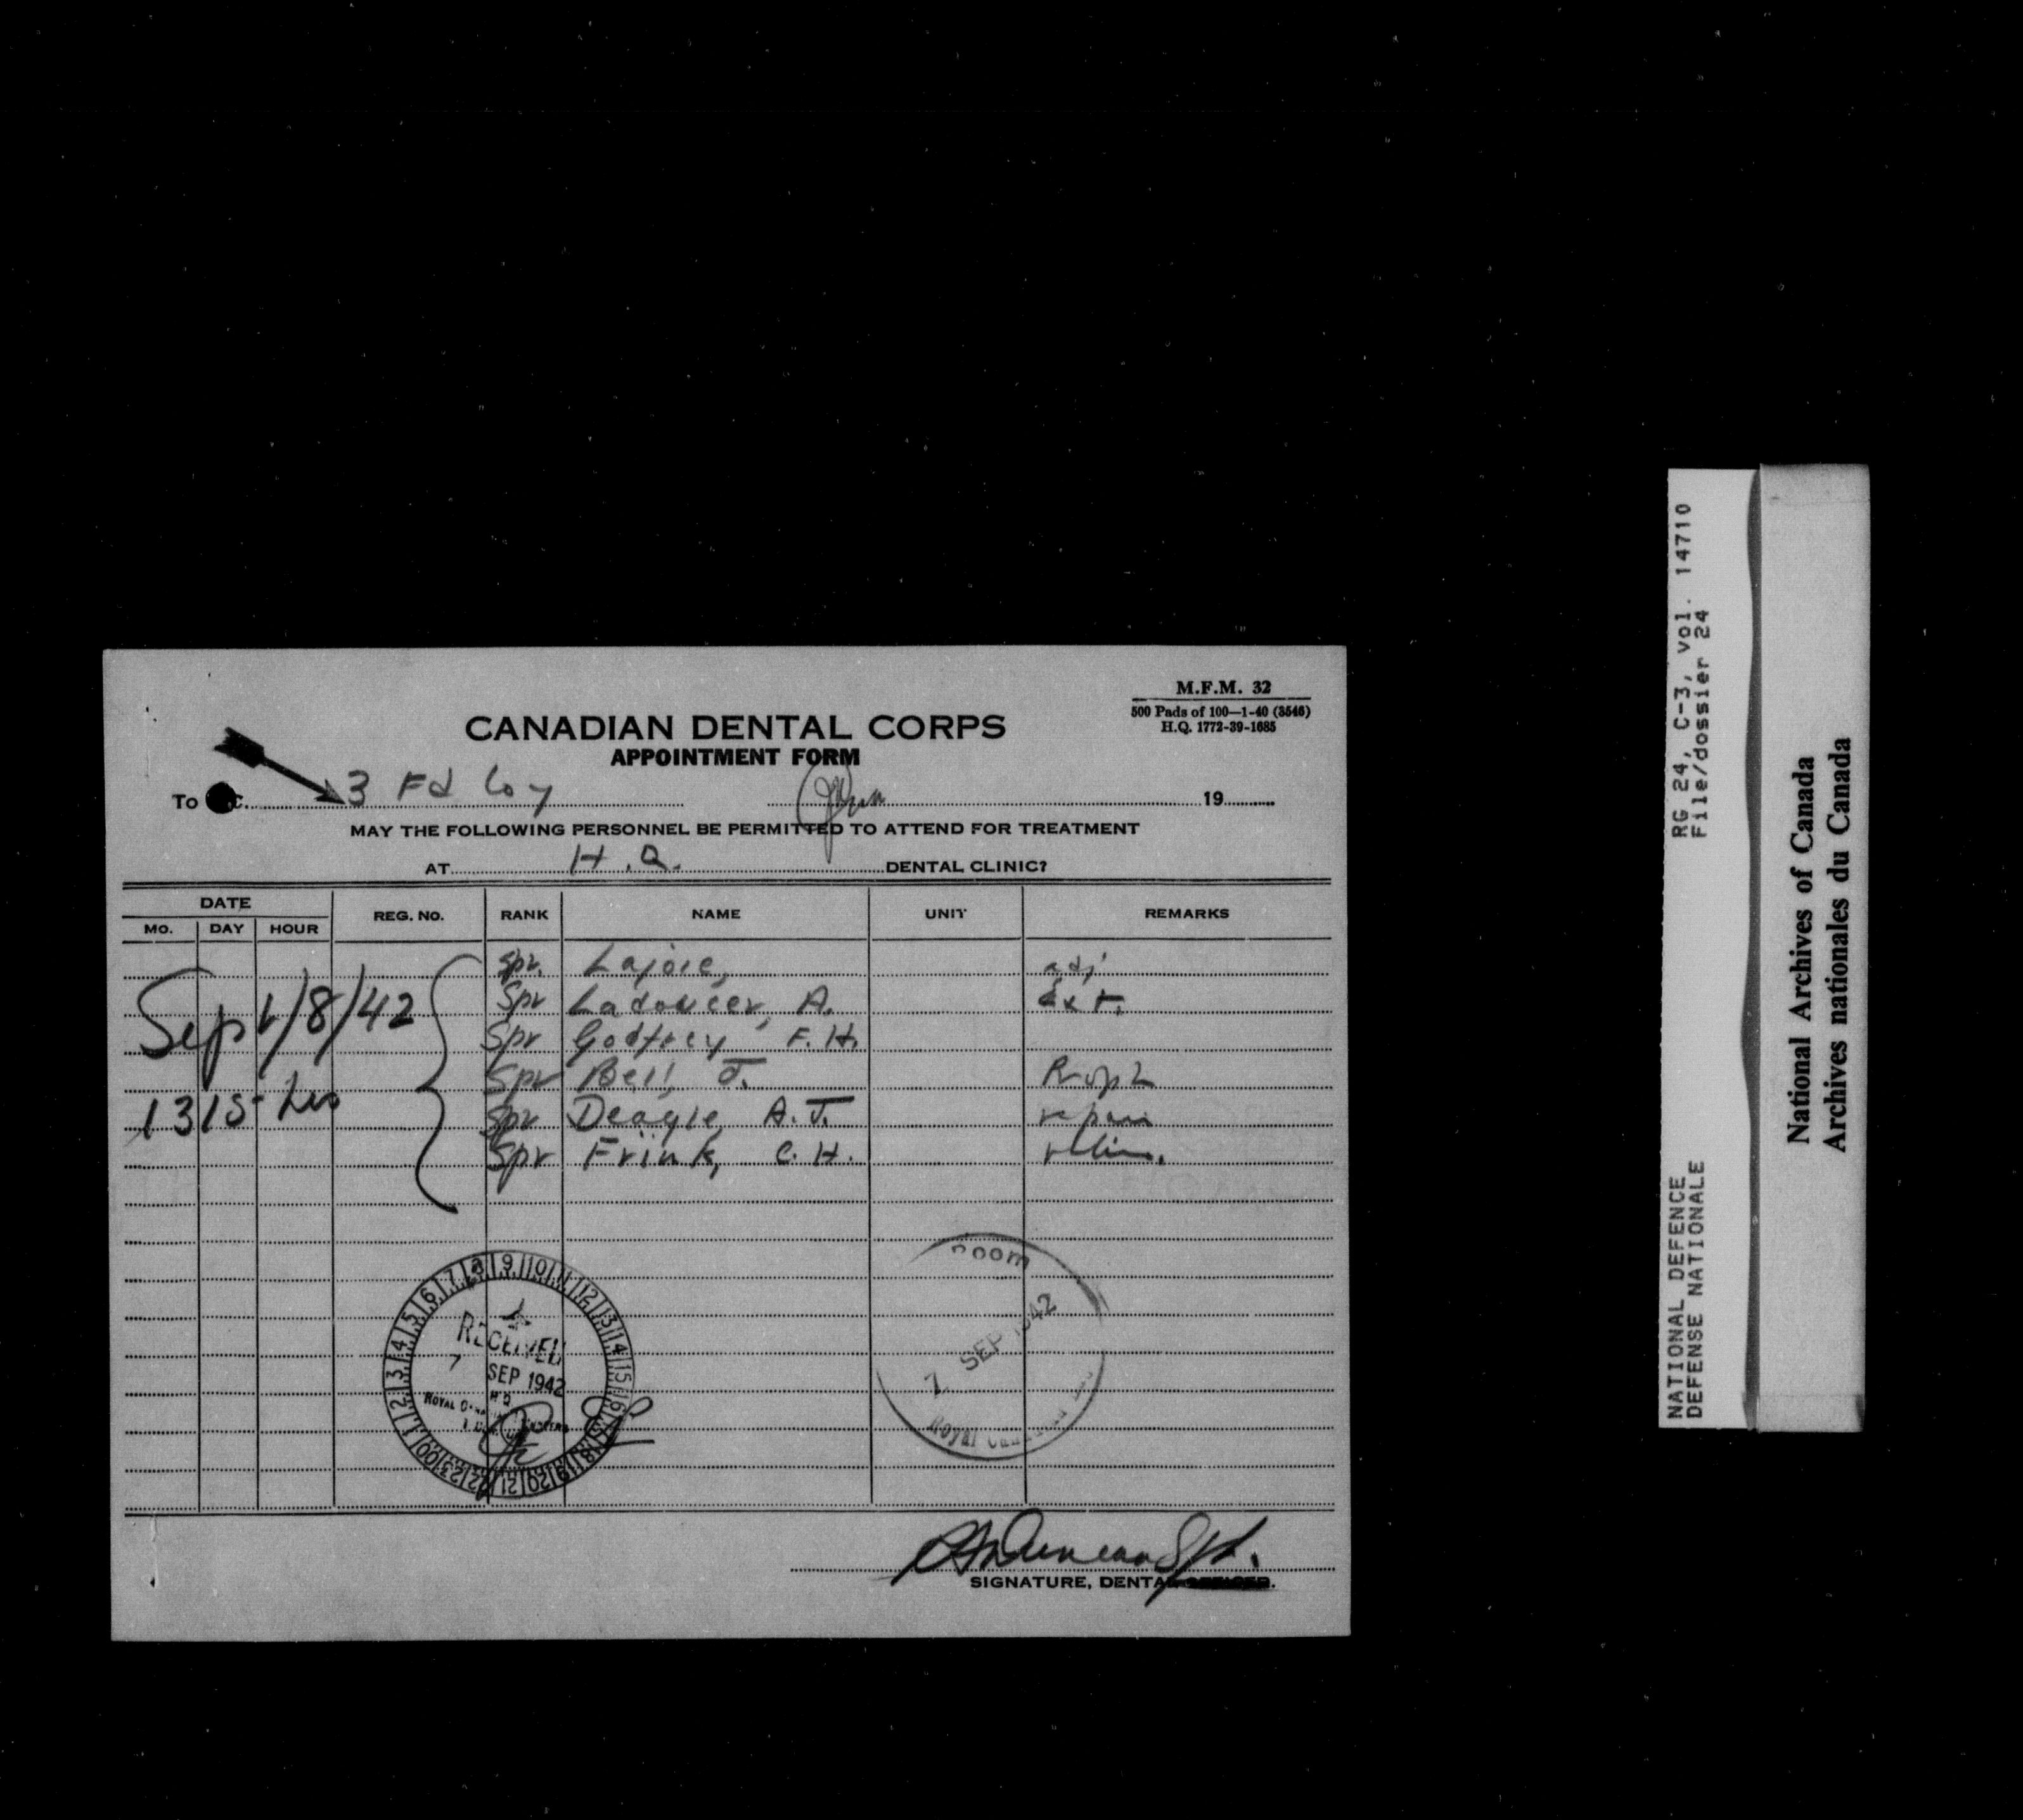 M.F.M. 32
500 Pads of 100—1-40 (3546)
H.Q. 1772-39-1685
CANADIAN DENTAL CORPS
APPOINTMENT FORM
To C. 3 Fd Coy 19
MAY THE FOLLOWING PERSONNEL BE PERMITTED TO ATTEND FOR TREATMENT
AT H.Q. DENTAL CLINIC?
DATE REG. NO. RANK NAME UNIT REMARKS
MO. DAY HOUR
Spr. Lajoie, adj
Sept/8/42 Spr Ladoucer, A. Ext.
Spr Godfrey F. H.
Spr Bell, J. Proph
1315 hrs Spr Deagle, A. J. repair
Spr Frink, C. H. reline.
1 2 3 4 5 6 7 8 9 10 11 12 13 14 15 16 17 18 19 20 21 22 23 00
RECEIVED
7 SEP 1942
H Q
ROYAL
Room
7 SEP 1942
Royal
Duncan Sgt.
SIGNATURE, DENTAL
RG 24, C-3, vol. 14710
File/dossier 24
NATIONAL DEFENCE
DEFENSE NATIONALE
National Archives of Canada
Archives nationales du Canada